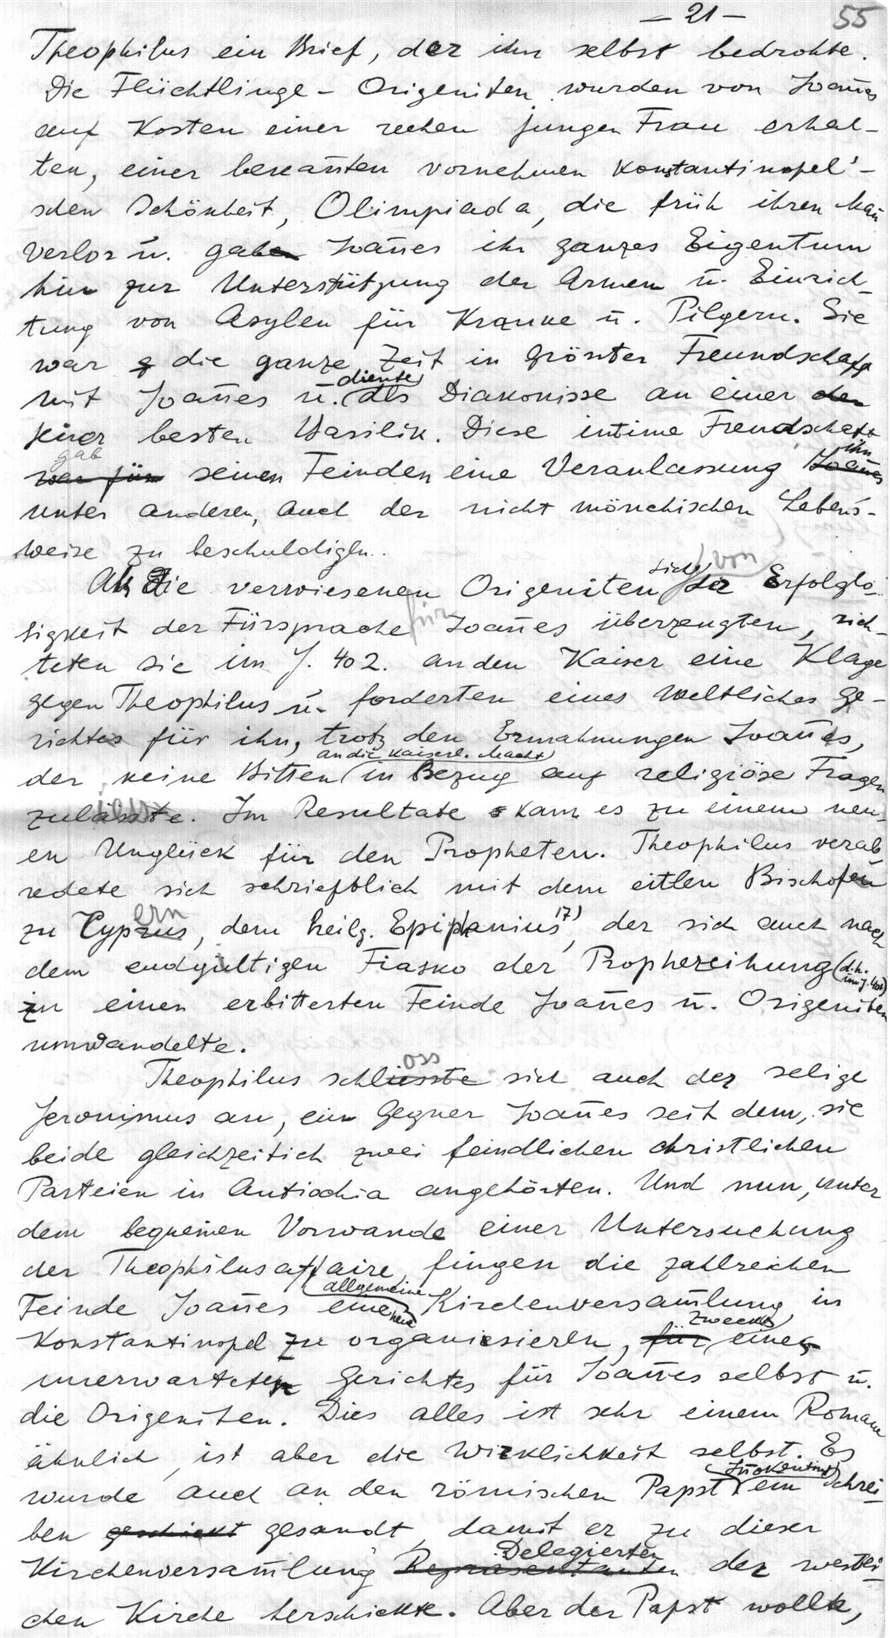 — 21 —
55
Theophilus ein Brief, der ihn selbst bedrohte.
Die Flüchtlinge – Origeniten wurden von Joan̄es
auf Kosten einer reichen jungen Frau erhal-
ten, einer bekan̄ten vornehmen Konstantinopel'-
schen Schönheit, Olimpiada, die früh ihren Man̄
verlor ū. gab Joan̄es ihr ganzes Eigentum
hin zur Unterstützung der Armen ū. Einrich-
tung von Asylen für Kranke ū. Pilgern. Sie
war die ganze Zeit in grösster Freundschaft
mit Joan̄es ū. diente als Diakonisse an einer
seiner besten Basilik. Diese intime Freundschaft
gab seinen Feinden eine Veranlassung ihn
unter anderen, auch der nicht mönchischen Lebens-
weise zu beschuldigen.
Als die verwiesenen Origeniten sich von der Erfolglo-
sigkeit der Fürsprache für Joan̄es überzeugten, rich-
teten sie im J. 402. an den Kaiser eine Klage
gegen Theophilus ū. forderten eines weltliches Ge-
richtes für ihn, trotz den Ermahnungen Joan̄es,
der keine Bitten an die Kaiserl. Macht in Bezug auf religiöse Fragen
Im Resultate kam es zu einem neu-
en Unglück für den Propheten. Theophilus verab-
redete sich schriefblich mit dem eitlen Bischofen
zu Cypern, dem heilg. Epiphanius 17), der sich auch nach
dem endgültigen Fiasko der Prophezeihung (d.h. im J. 402)
in einen erbitterten Feinde Joan̄es ū. Origeniten
umwandelte.
Theophilus schloss sich auch der selige
Jeronimus an, ein Gegner Joan̄es seit dem, sie
beide gleichzeitich zwei feindlichen christlichen
Parteien in Antiochia angehörten. Und nun, unter
dem bequemen Vorwande einer Untersuchung
der Theophilusaffaire fingen die zahlreichen
Feinde Joan̄es eine allgemeine Kirchenversam̄lung in
Konstantinopel zu organiesieren, zwecks eines
unerwarteten Gerichtes für Joan̄es selbst ū.
die Origeniten. Dies alles ist sehr einem Romane
ähnlich, ist aber die Wirklichkeit selbst. Es
wurde auch an den römischen Papst Inokentius ein Schrei-
ben gesandt, damit er zu dieser
Kirchenversam̄lung Delegierten der westli-
chen Kirche herschickte. Aber der Papst wollte,